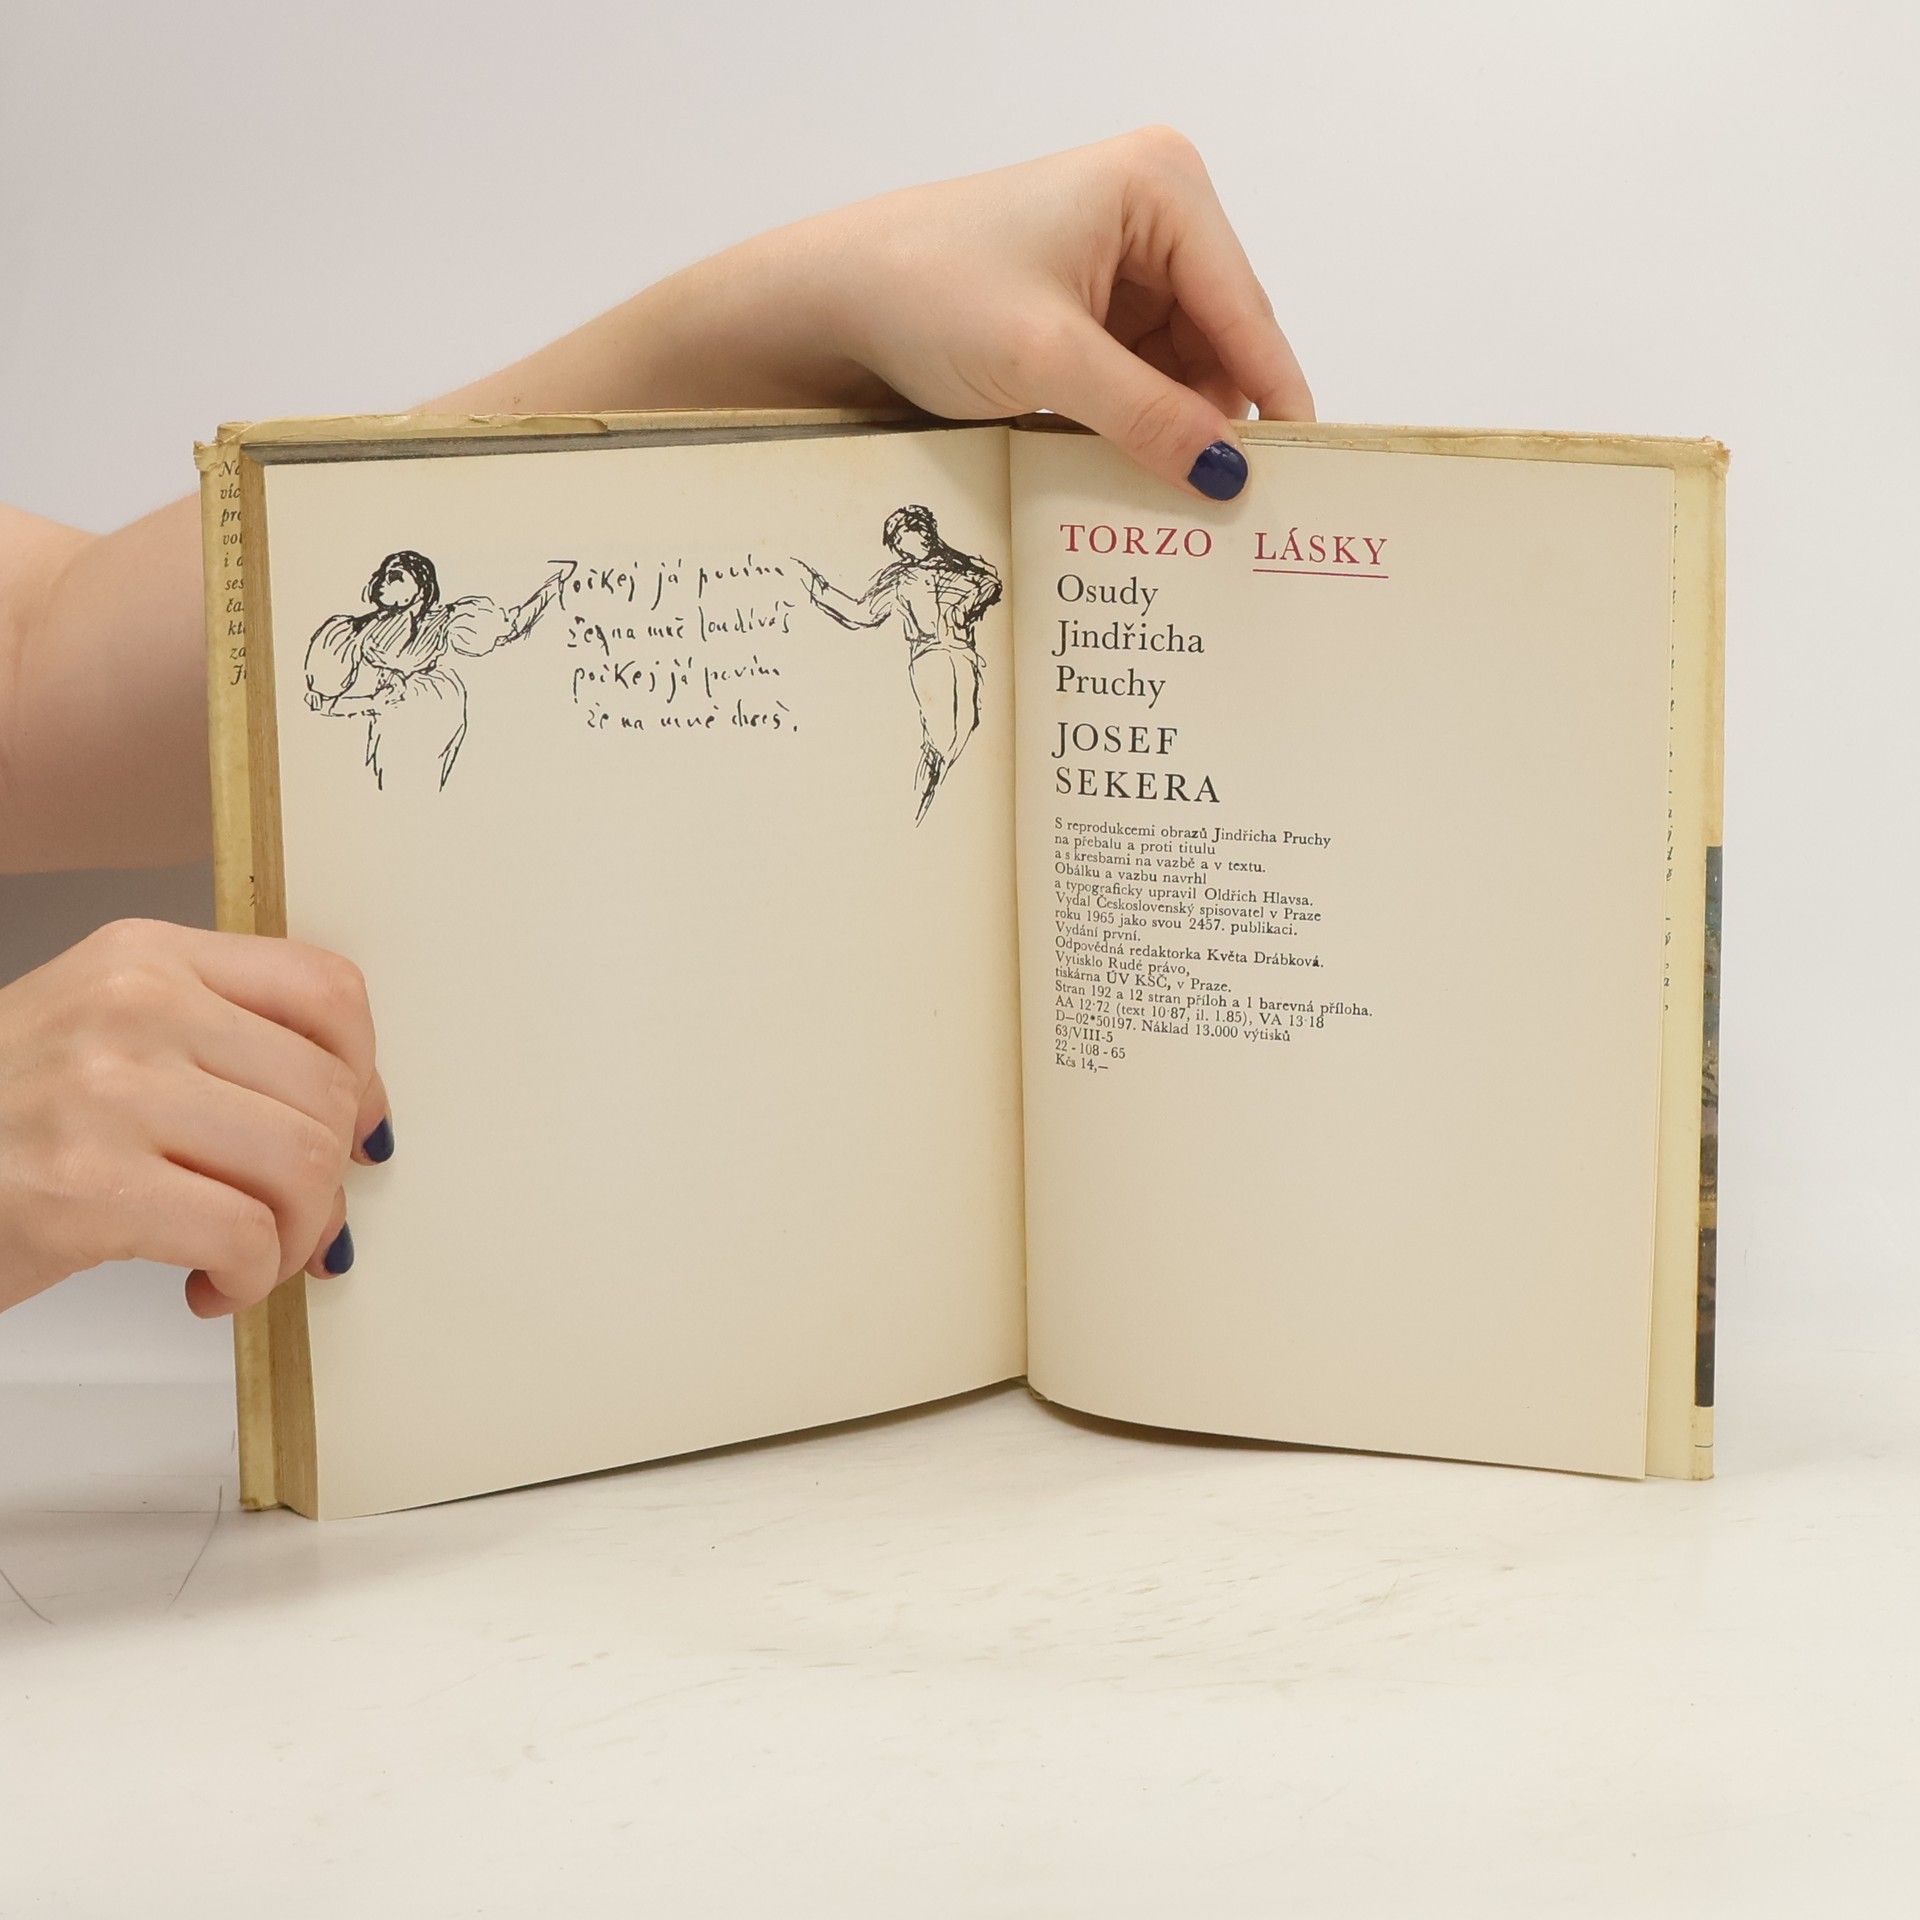 Počkej já povím
že na mně loudíváš
počkej já povím
že na mně chceš.
TORZO LÁSKY
Osudy
Jindřicha
Pruchy
JOSEF
SEKERA
S reprodukcemi obrazů Jindřicha Pruchy
na přebalu a proti titulu
a s kresbami na vazbě a v textu.
Obálku a vazbu navrhl
a typograficky upravil Oldřich Hlavsa.
Vydal Československý spisovatel v Praze
roku 1965 jako svou 2457. publikaci.
Vydání první.
Odpovědná redaktorka Květa Drábková.
Vytisklo Rudé právo,
tiskárna ÚV KSČ, v Praze.
Stran 192 a 12 stran příloh a 1 barevná příloha.
AA 12·72 (text 10·87, il. 1.85), VA 13·18
D—02*50197. Náklad 13.000 výtisků
63/VIII-5
22 - 108 - 65
Kčs 14,—